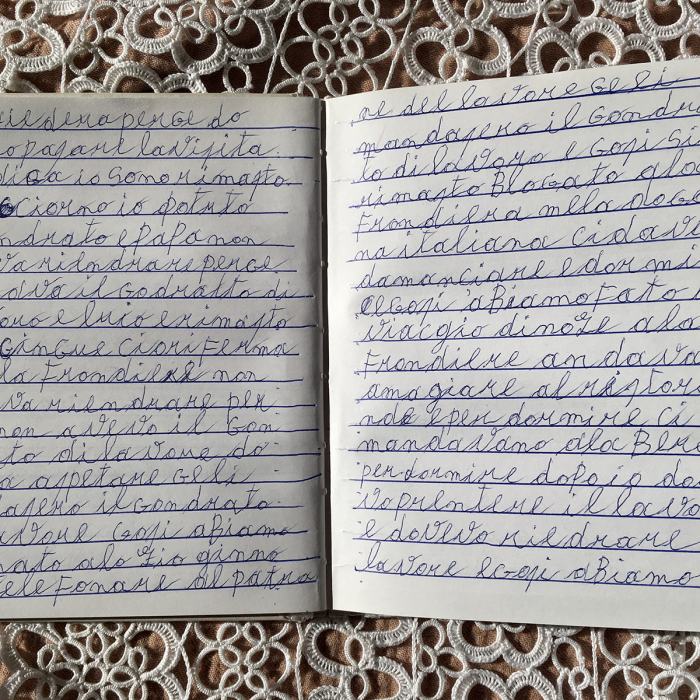 riedenapenGe do
opasare lavisita
diGa io Sono rimasto
Giorno io potuto
ndrato epapa non
va riendrare penGe
veva il Godratto di
voro e luio e rimasto
GinGue Ciori Ferma
la Frondiere non
va riendrare per
non avevo il Gon
to di lavore do
a aspetare Geli
dasero il Gondrato
avore Gosi aBiamo
nato alo Zio ginno
teleFonare al patro
re del lavore Geli
mandasero il Gondra
to di lavoro e Gosi Si
rimasto BloGato alo
Frondiera mela doG
na italiana Ci dav
damanciare e dormi
eGosi aBiamo Fato
viacgio dinoZe ala
Frondiere andava
amagiare al ristor
nde e per dormire Ci
mandavano ala Ber
per dormire dopoio do
vaprentere il lavo
e dovevo riedrare
lavore eGosi aBiamo